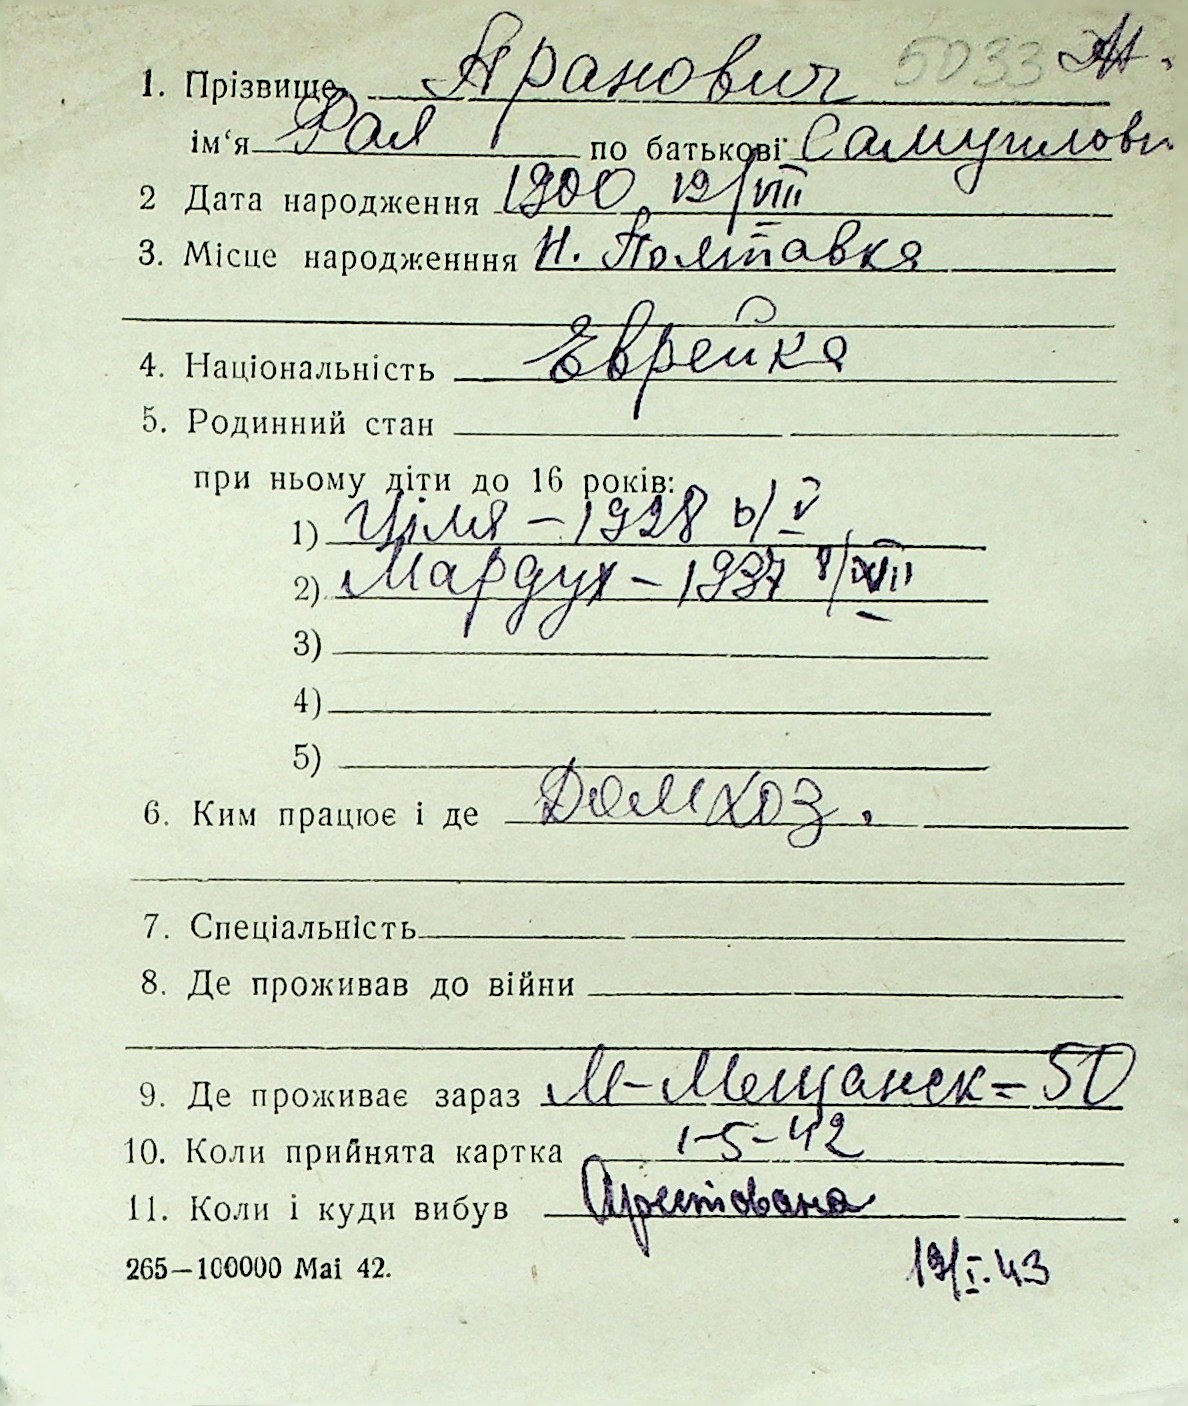 5033
1. Прізвище Аранович
ім‘я Рая по батькові Самуиловн
2 Дата народження 1900 12/VIII
3. Місце народженння Н. Полтавка
4. Національність Еврейка
5. Родинний стан
при ньому діти до 16 років:
1) Ціля – 1928 6/V
2) Мардух – 1937 8/VIII
3)
4)
5)
6. Ким працює і де Домхоз.
7. Спеціальність
8. Де проживав до війни
9. Де проживає зараз М-Мещанск = 50
10. Коли прийнята картка 1-5-42
11. Коли і куди вибув Арештована
265—100000 Маі 42.
19/I.43